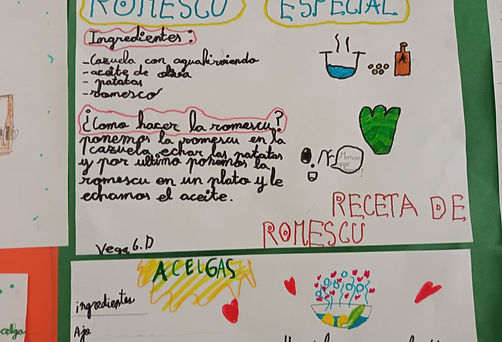 ROMESCU ESPECIAL
Ingredientes:
-Cazuela con agua hirviendo
-aceite de oliva
- patatas
-romesco
¿Como hacer la romescu?
ponemos la romescu en la
cazuela echar las patatas
y por ultimo ponemos la
romescu en un plato y le
echamos el aceite.
RECETA DE
ROMESCU
Vega 6.D
ACELGAS
ingredientes
Ajo